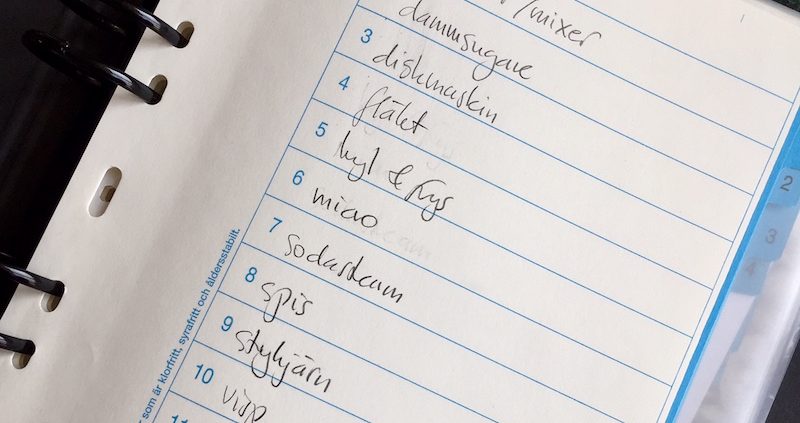 /mixer
dammsugare
3 diskmaskin
4 fläkt
5 kyl & frys
6 micro
7 sodastream
8 spis
9 strykjärn
10 visp
11
som är klorfritt, syrafritt och åldersstabilt.
2
3
4